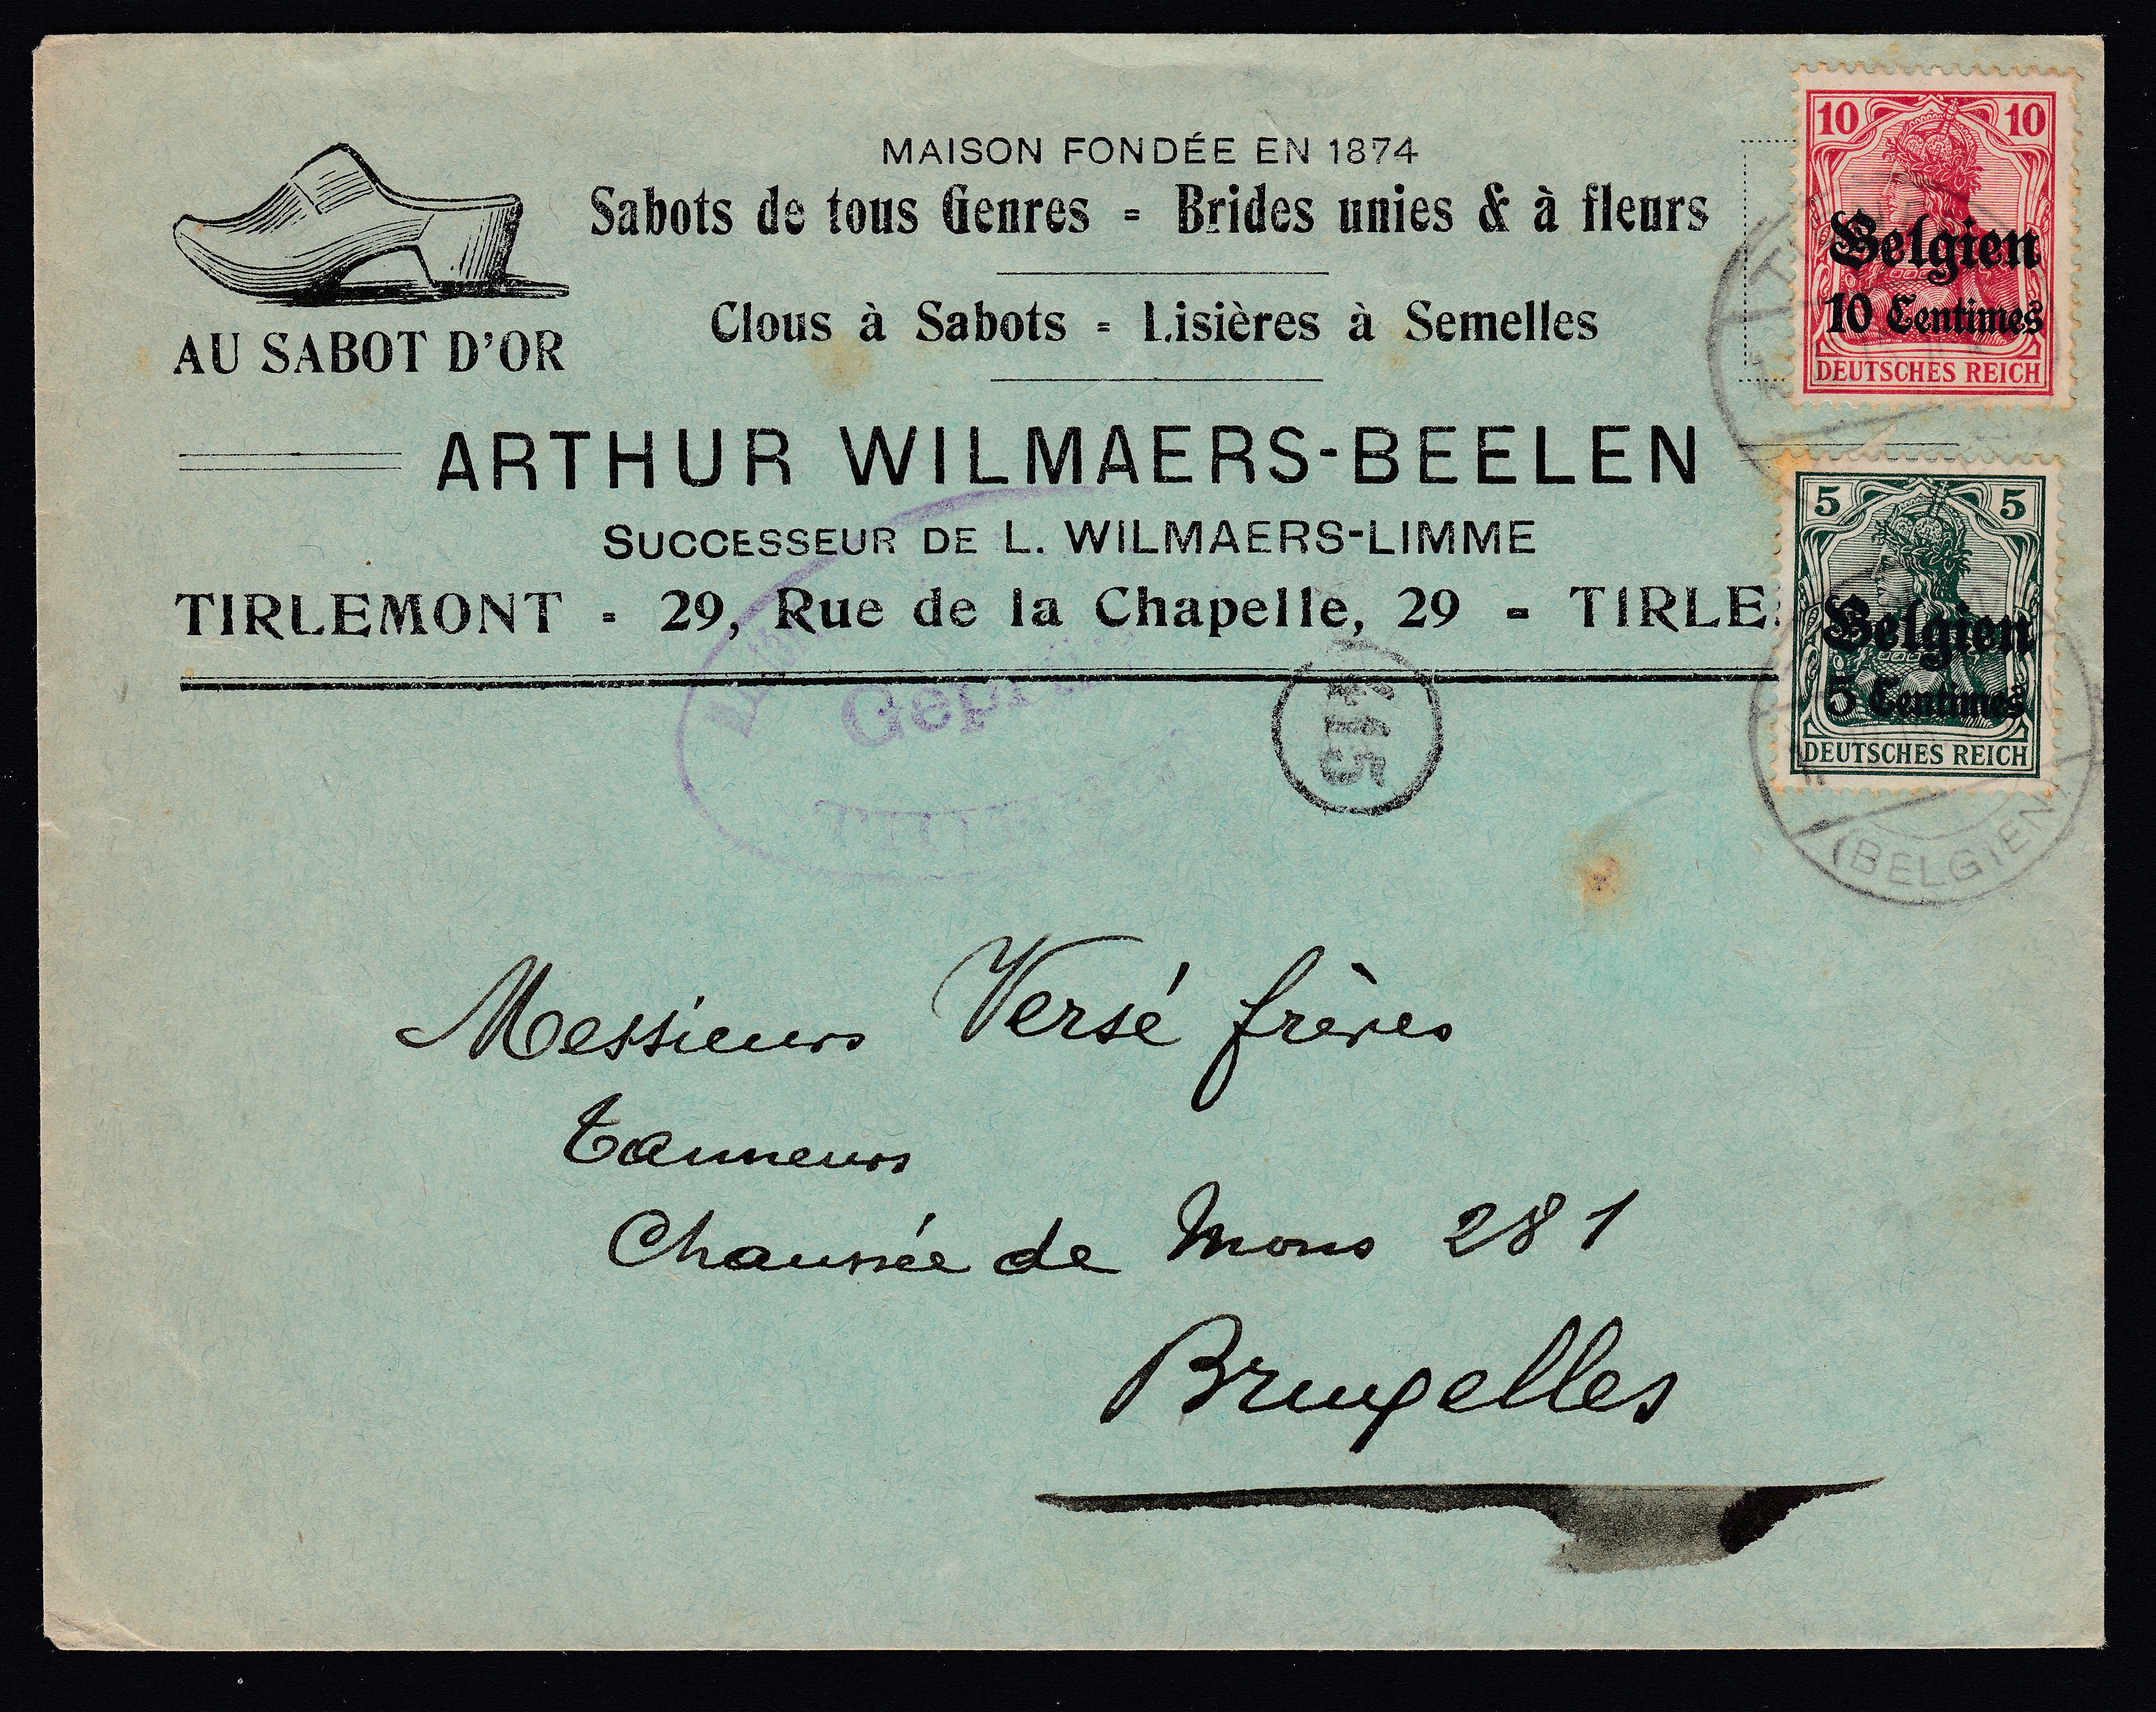 MAISON FONDÉE EN 1874
Sabots de tous Genres = Brides unies & à fleurs
Clous à Sabots = Lisières à Semelles
AU SABOT D'OR
ARTHUR WILMAERS-BEELEN
SUCCESSEUR DE L. WILMAERS-LIMME
TIRLEMONT - 29, Rue de la Chapelle, 29 - TIRLE
10 10
Belgien
10 Centimes
DEUTSCHES REICH
5 5
Belgien
5 Centimes
DEUTSCHES REICH
(BELGIEN)
Messieurs Versé frères
Tanneurs
Chaussée de Mons 281
Bruxelles